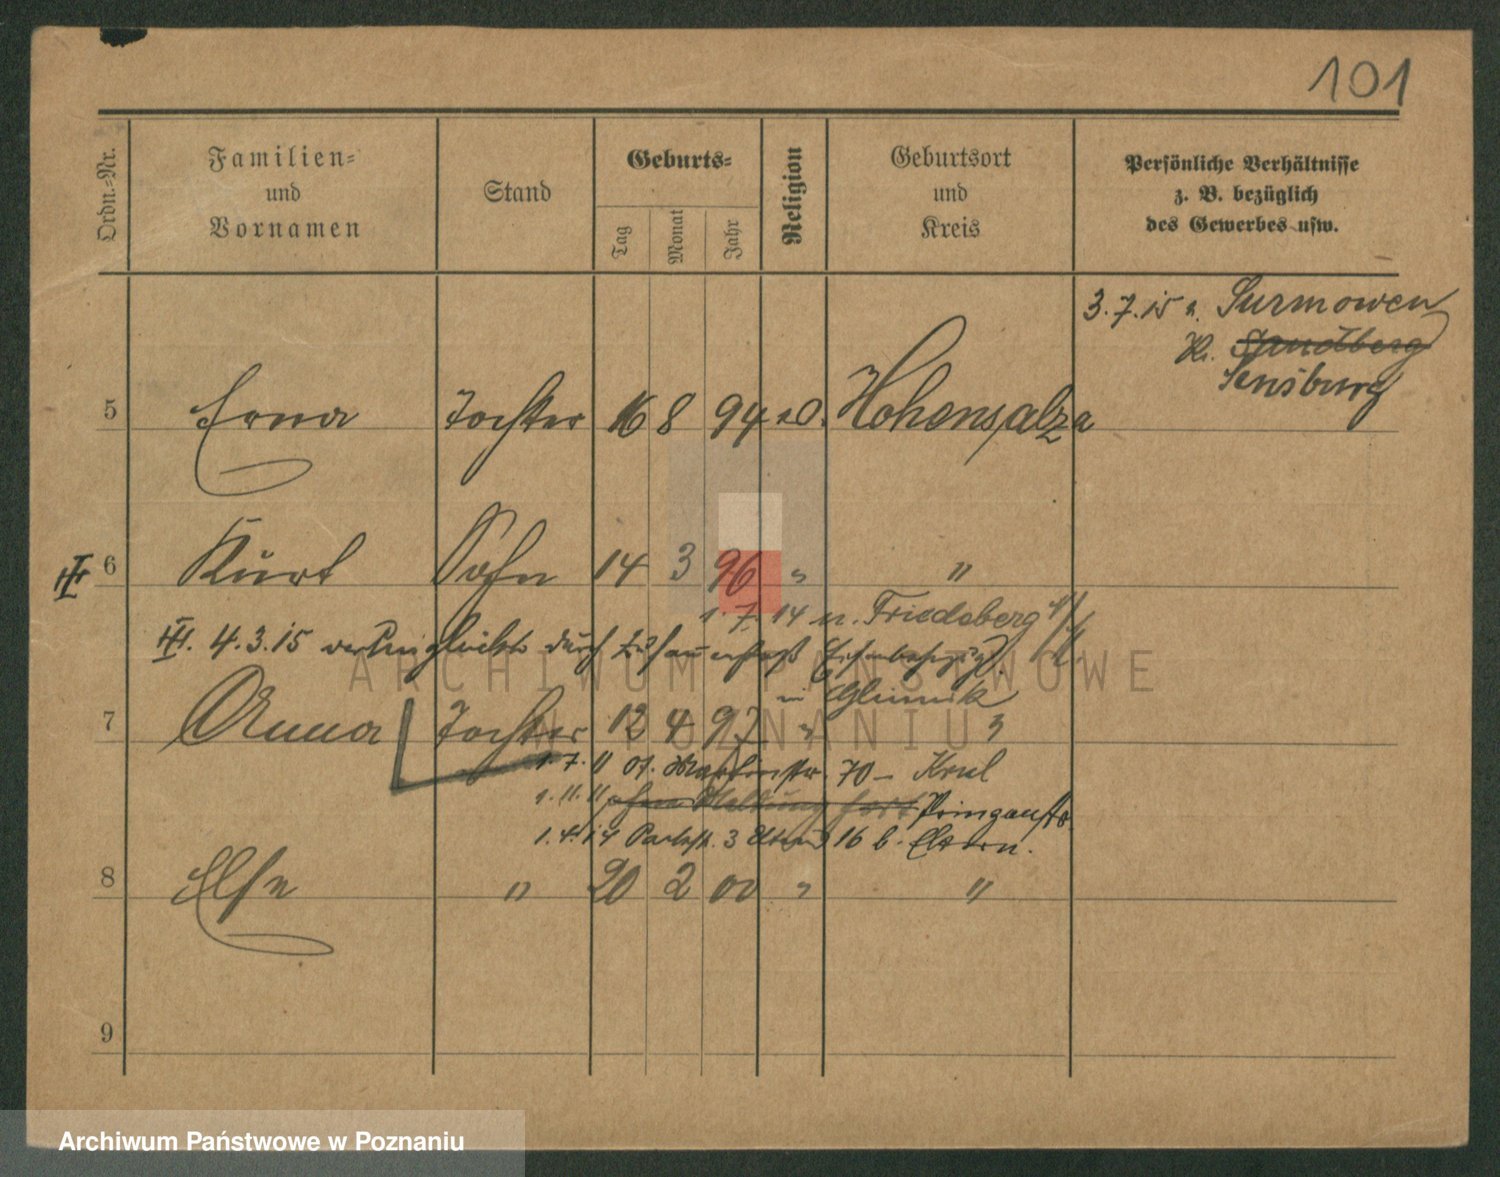 101
Ordn.-Nr.
Familien-
und
Vornamen
Stand
Geburts-
Tag
Monat
Jahr
Religion
Geburtsort
und
Kreis
Persönliche Verhältnisse
z. B. bezüglich
des Gewerbes usw.
3.7.15 n. Surmowen
Kr. Sandberg
Sensburg
5 Erna Tochter 16 8 94 Hohensalza
6 Kurt Sohn 14 3 96 " "
1.7.14 n. Friedeberg
4.3.15 verunglückt durch Zusammenstoß
in
7 Anna Tochter 12 4 97 " "
1.7.11 Martinstr. 70 -
1.11.11 ohne Meldung fort
1.4.14 Parkstr. 3 16 b. Eltern.
8 Else " 20 2 00 " "
9
ARCHIWUM PAŃSTWOWE
W POZNANIU
Archiwum Państwowe w Poznaniu